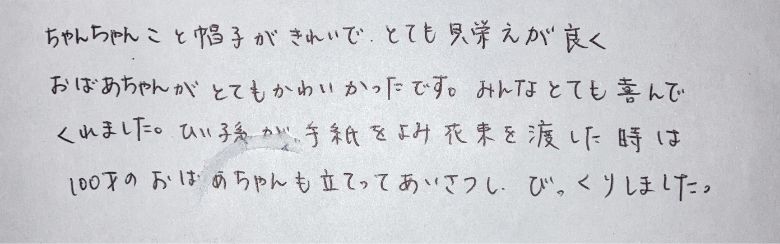 ちゃんちゃんこと帽子がきれいで、とても見栄えが良く
おばあちゃんがとてもかわいかったです。みんなとても喜んで
くれました。ひい孫が、手紙をよみ花束を渡した時は
100才のおばあちゃんも立てってあいさつし、びっくりしました。